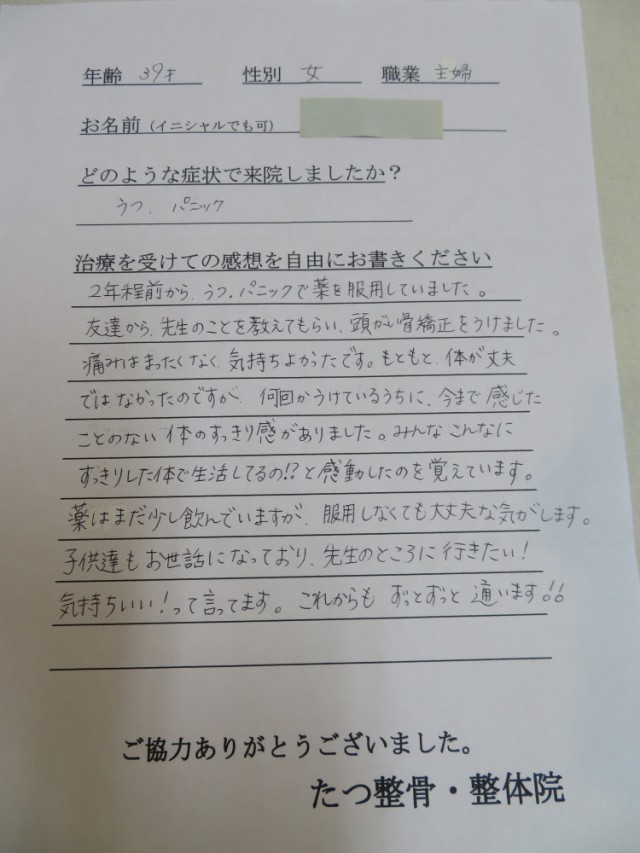 年齢 39才 性別 女 職業 主婦
お名前(イニシャルでも可)
どのような症状で来院しましたか?
うつ、パニック
治療を受けての感想を自由にお書きください
2年程前から、うつ、パニックで薬を服用していました。
友達から、先生のことを教えてもらい、頭がい骨矯正をうけました。
痛みはまったくなく、気持ちよかったです。もともと、体が丈夫
ではなかったのですが、何回かうけているうちに、今まで感じた
ことのない体のすっきり感がありました。みんなこんなに
すっきりした体で生活してるの!?と感動したのを覚えています。
薬はまだ少し飲んでいますが、服用しなくても大丈夫な気がします。
子供達もお世話になっており、先生のところに行きたい!
気持ちいい!って言ってます。これからもずっとずっと通います!!
ご協力ありがとうございました。
たつ整骨・整体院